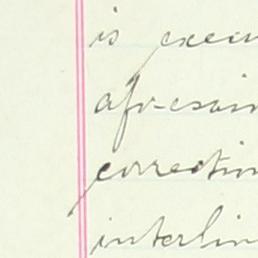 is execu
aforesai
correction
interlin